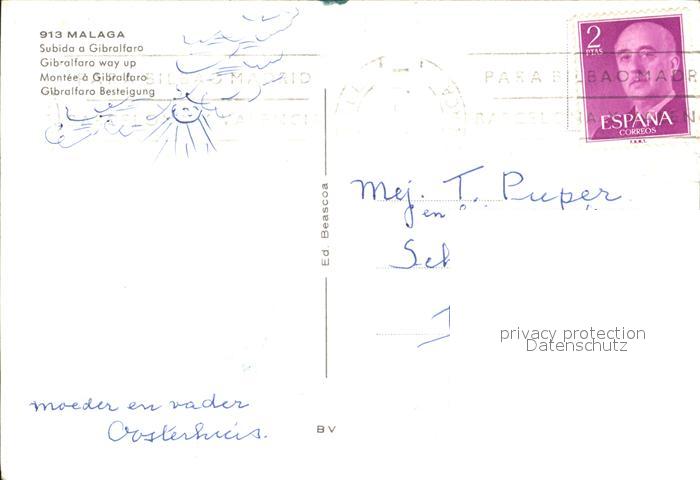 913 MALAGA
Subida a Gibralfaro
Gibralfaro way up
Montée à Gibralfaro
Gibralfaro Besteigung
PARA BILBAO MADRID
2
PTAS
ESPAÑA
CORREOS
F.N.M.T.
PARA BILBAO MADR
Mej. T. Puper
en
Sch
Ed. Beascoa
privacy protection
Datenschutz
moeder en vader
Oosterhuis.
BV